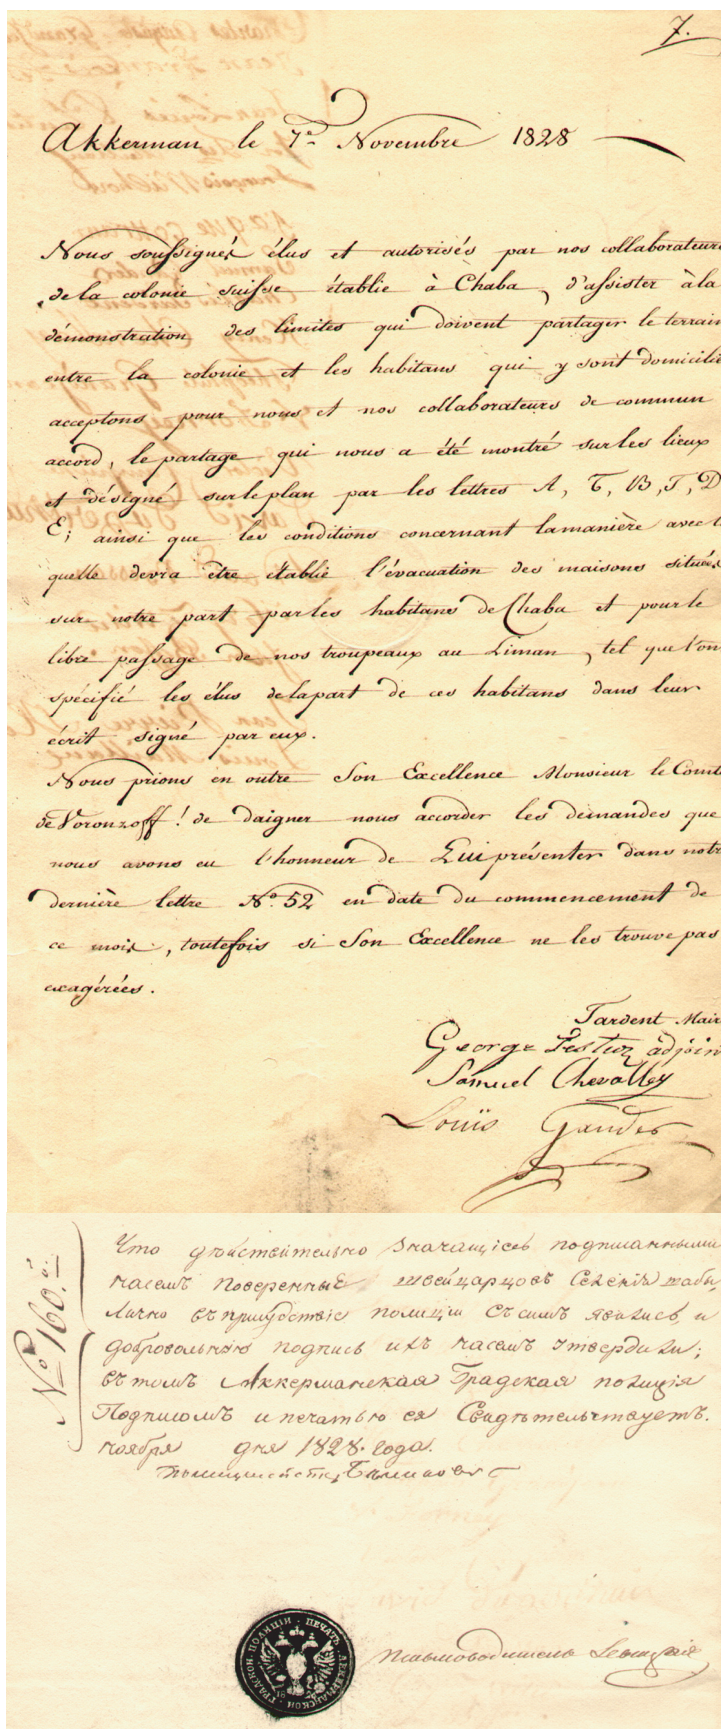 7.
Akkerman le 7e Novembre 1828
Nous soussignés élus et autorisés par nos collaborateurs
de la colonie suisse établie à Chaba, d'assister à la
démonstration des limites qui doivent partager le terrain
entre la colonie et les habitans qui y sont domicilié
acceptons pour nous et nos collaborateurs de commun
accord, le partage qui nous a été montré sur les lieux
et désigné sur le plan par les lettres A, B, D
E; ainsi que les conditions concernant la manière avec la
quelle devra être établie l'évacuation des maisons situées
sur notre part par les habitans de Chaba et pour le
libre passage de nos troupeaux au Liman, tel que l'ont
spécifié les élus de la part de ces habitans dans leur
écrit signé par eux.
Nous prions en outre Son Excellence Monsieur le Comte
de Voronzoff! de daigner nous accorder les demandes que
nous avons eu l'honneur de Lui présenter dans notre
dernière lettre No. 52 en date du commencement de
ce mois, toutefois si Son Excellence ne les trouve pas
exagérées.
Tardent Mair
George adjoin
Samuel Chevalley
Louïs Gander
No 160.
Что действительно значащіесь подписанными
швейцарцовъ
Лично въ присудствіе полиціи съ симъ явились и
добровольную подпись ихъ утвердили;
въ томъ Аккерманская Градская полиція
Подписомъ и печатью ея Свидѣтельствуетъ.
ноября дня 1828. года.
ПЕЧАТЬ АККЕРМАНСКОЙ ГРАДСКОЙ ПОЛИЦІИ
Письмоводитель